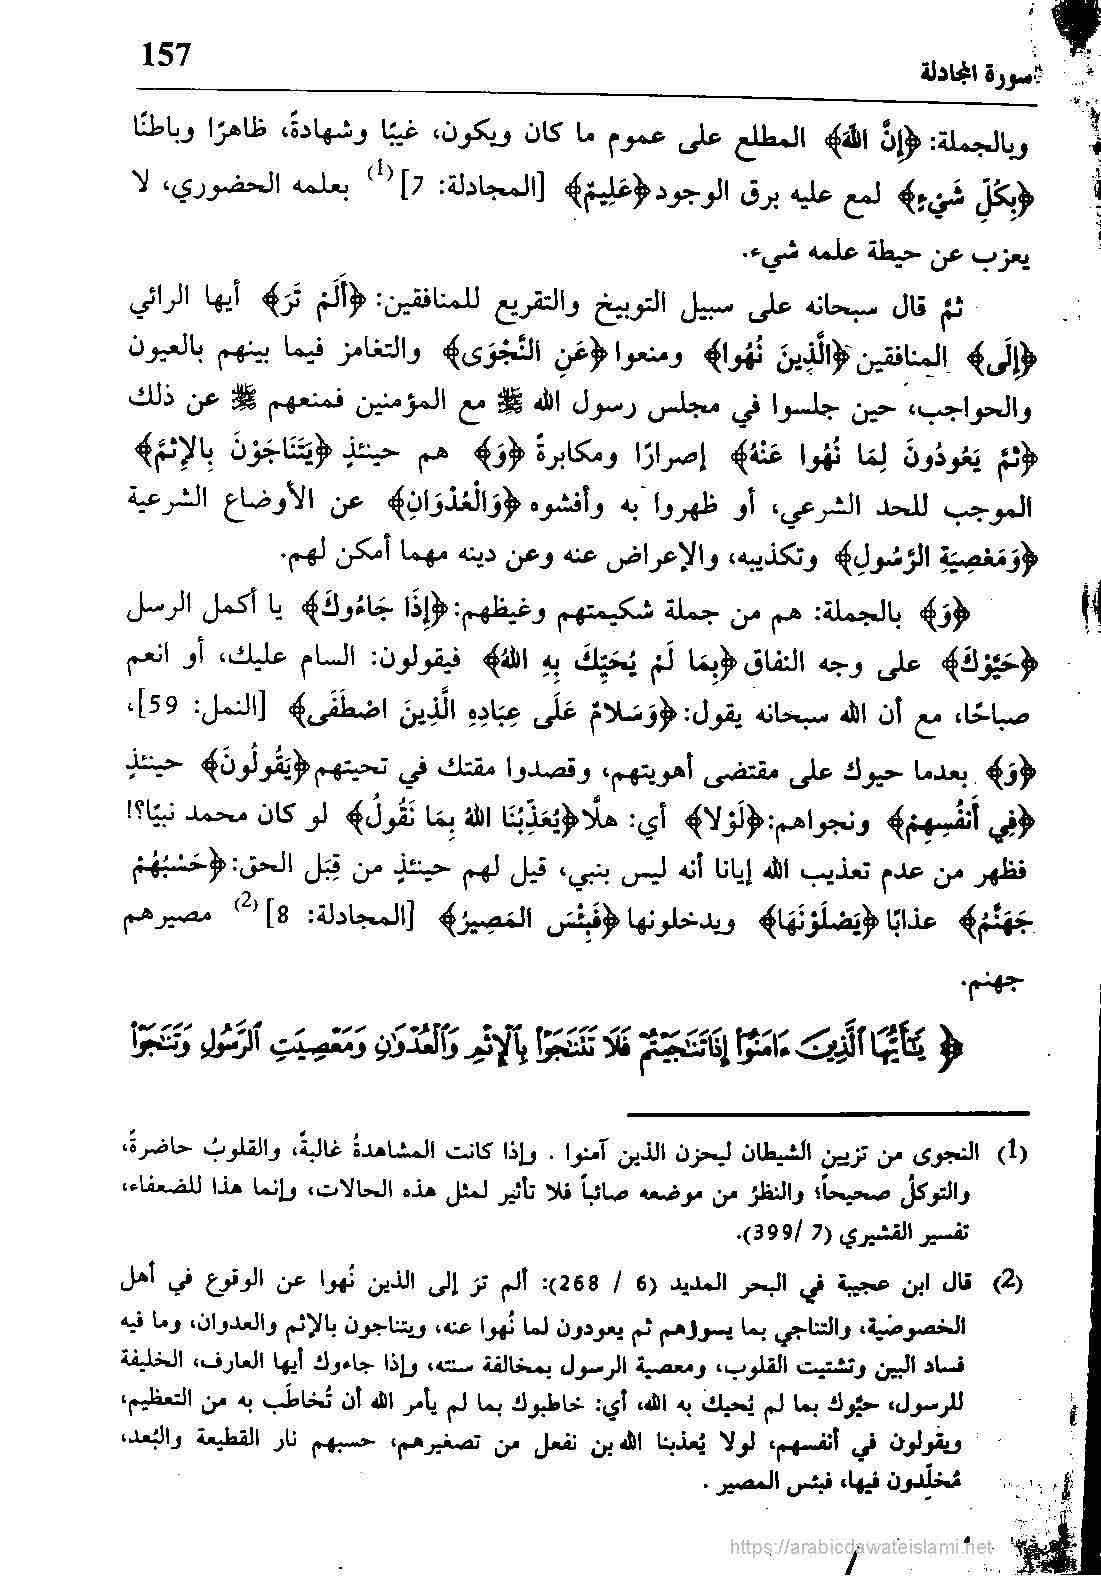 157
سورة المجادلة
وبالجملة: ﴿إِنَّ اللَّهَ﴾ المطلع على عموم ما كان ويكون، غيبًا وشهادةً، ظاهرًا وباطنًا
﴿بِكُلِّ شَيْءٍ﴾ لمع عليه برق الوجود ﴿عَلِيمٌ﴾ [المجادلة: 7] (1) بعلمه الحضوري، لا
يعزب عن حيطة علمه شيء.
ثمَّ قال سبحانه على سبيل التوبيخ والتقريع للمنافقين: ﴿أَلَمْ تَرَ﴾ أيها الرائي
﴿إِلَى﴾ المنافقين ﴿الَّذِينَ نُهُوا﴾ ومنعوا ﴿عَنِ النَّجْوَى﴾ والتغامز فيما بينهم بالعيون
والحواجب، حين جلسوا في مجلس رسول الله ﷺ مع المؤمنين فمنعهم ﷺ عن ذلك
﴿ثمَّ يَعُودُونَ لِمَا نُهُوا عَنْهُ﴾ إصرارًا ومكابرةً ﴿وَ﴾ هم حينئذٍ ﴿يَتَنَاجَوْنَ بِالإِثْمَّ﴾
الموجب للحد الشرعي، أو ظهروا به وأفشوه ﴿وَالْعُدْوَانِ﴾ عن الأوضاع الشرعية
﴿وَمَعْصِيَةِ الرَّسُولِ﴾ وتكذيبه، والإعراض عنه وعن دينه مهما أمكن لهم.
﴿وَ﴾ بالجملة: هم من جملة شكيمتهم وغيظهم: ﴿إِذَا جَاءُوكَ﴾ يا أكمل الرسل
﴿حَيَّوْكَ﴾ على وجه النفاق ﴿بِمَا لَمْ يُحَيِّكَ بِهِ اللَّهُ﴾ فيقولون: السام عليك، أو انعم
صباحًا، مع أن الله سبحانه يقول: ﴿وَسَلامٌ عَلَى عِبَادِهِ الَّذِينَ اصْطَفَى﴾ [النمل: 59]،
﴿وَ﴾ بعدما حيوك على مقتضى أهويتهم، وقصدوا مقتك في تحيتهم ﴿يَقُولُونَ﴾ حينئذٍ
﴿فِي أَنفُسِهِمْ﴾ ونجواهم: ﴿لَوْلا﴾ أي: هلَّا ﴿يُعَذِّبُنَا اللَّهُ بِمَا نَقُولُ﴾ لو كان محمد نبيًا؟!
فظهر من عدم تعذيب الله إيانا أنه ليس بنبي، قيل لهم حينئذٍ من قِبَل الحق: ﴿حَسْبُهُمْ
جَهَنَّمُ﴾ عذابًا ﴿يَصْلَوْنَهَا﴾ ويدخلونها ﴿فَبِئْسَ المَصِيرُ﴾ [المجادلة: 8] (2) مصيرهم
جهنم.
﴿ يَٰٓأَيُّهَا ٱلَّذِينَ ءَامَنُوٓا۟ إِذَا تَنَٰجَيْتُمْ فَلَا تَتَنَٰجَوْا۟ بِٱلْإِثْمِ وَٱلْعُدْوَٰنِ وَمَعْصِيَتِ ٱلرَّسُولِ وَتَنَٰجَوْا۟
(1) النجوى من تزيين الشيطان ليحزن الذين آمنوا . وإذا كانت المشاهدةُ غالبةً، والقلوبُ حاضرةً،
والتوكلُ صحيحاً؛ والنظرُ من موضعه صائباً فلا تأثير لمثل هذه الحالات، وإنما هذا للضعفاء،
تفسير القشيري (7 /399).
(2) قال ابن عجيبة في البحر المديد (6 / 268): ألم ترَ إلى الذين نُهوا عن الوقوع في أهل
الخصوصية، والتناجي بما يسوؤهم ثم يعودون لما نُهوا عنه، ويتناجون بالإثم والعدوان، وما فيه
فساد البين وتشتيت القلوب، ومعصية الرسول بمخالفة سنته، وإذا جاءوك أيها العارف، الخليفة
للرسول، حيُّوك بما لم يُحيك به الله، أي: خاطبوك بما لم يأمر الله أن تُخاطَب به من التعظيم،
ويقولون في أنفسهم، لولا يُعذبنا الله بن نفعل من تصغيرهم، حسبهم نار القطيعة والبُعد،
مُخلِّدون فيها، فبئس المصير .
https://arabicdawateislami.net